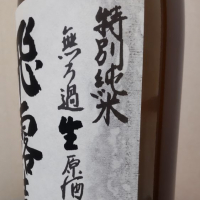 特別純米
無ろ過生原酒
飛露